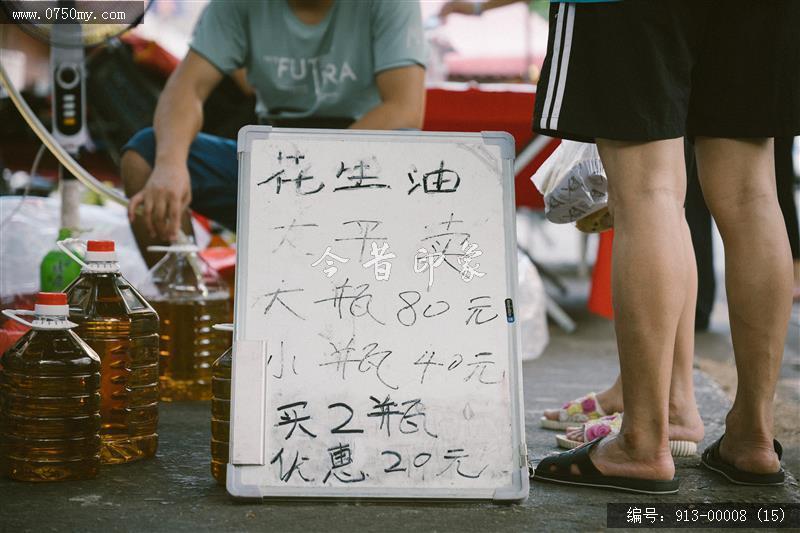 www.0750my.com
FUTURA
花生油
大平卖
今昔印象
大瓶80元
小瓶40元
买2瓶
优惠20元
编号：913-00008 (15)